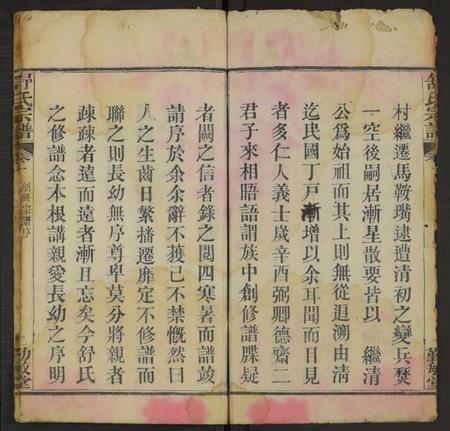 村繼遷馬鞍嘴逮遭清初之變兵燹
一空後嗣居漸星散要皆以 繼清
公爲始祖而其上則無從遡溯由清
迄民國丁戸漸增以余耳聞而目見
者多仁人義士歲辛酉弼卿德齋二
君子來相晤語謂族中創修譜牒疑
者闕之信者錄之閲四寒暑而譜竣
請序於余余辭不獲已不禁慨然曰
人之生齒日繁播遷靡定不修譜而
聯之則長幼無序尊卑莫分將親者
疎疎者遠而遠者漸且忘矣今舒氏
之修譜念本根講親愛長幼之序明
舒氏宗譜
卷一
創修宗譜序
勤敏堂